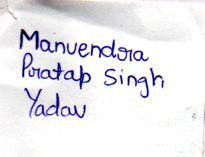 Manvendra
Pratap Singh
Yadav